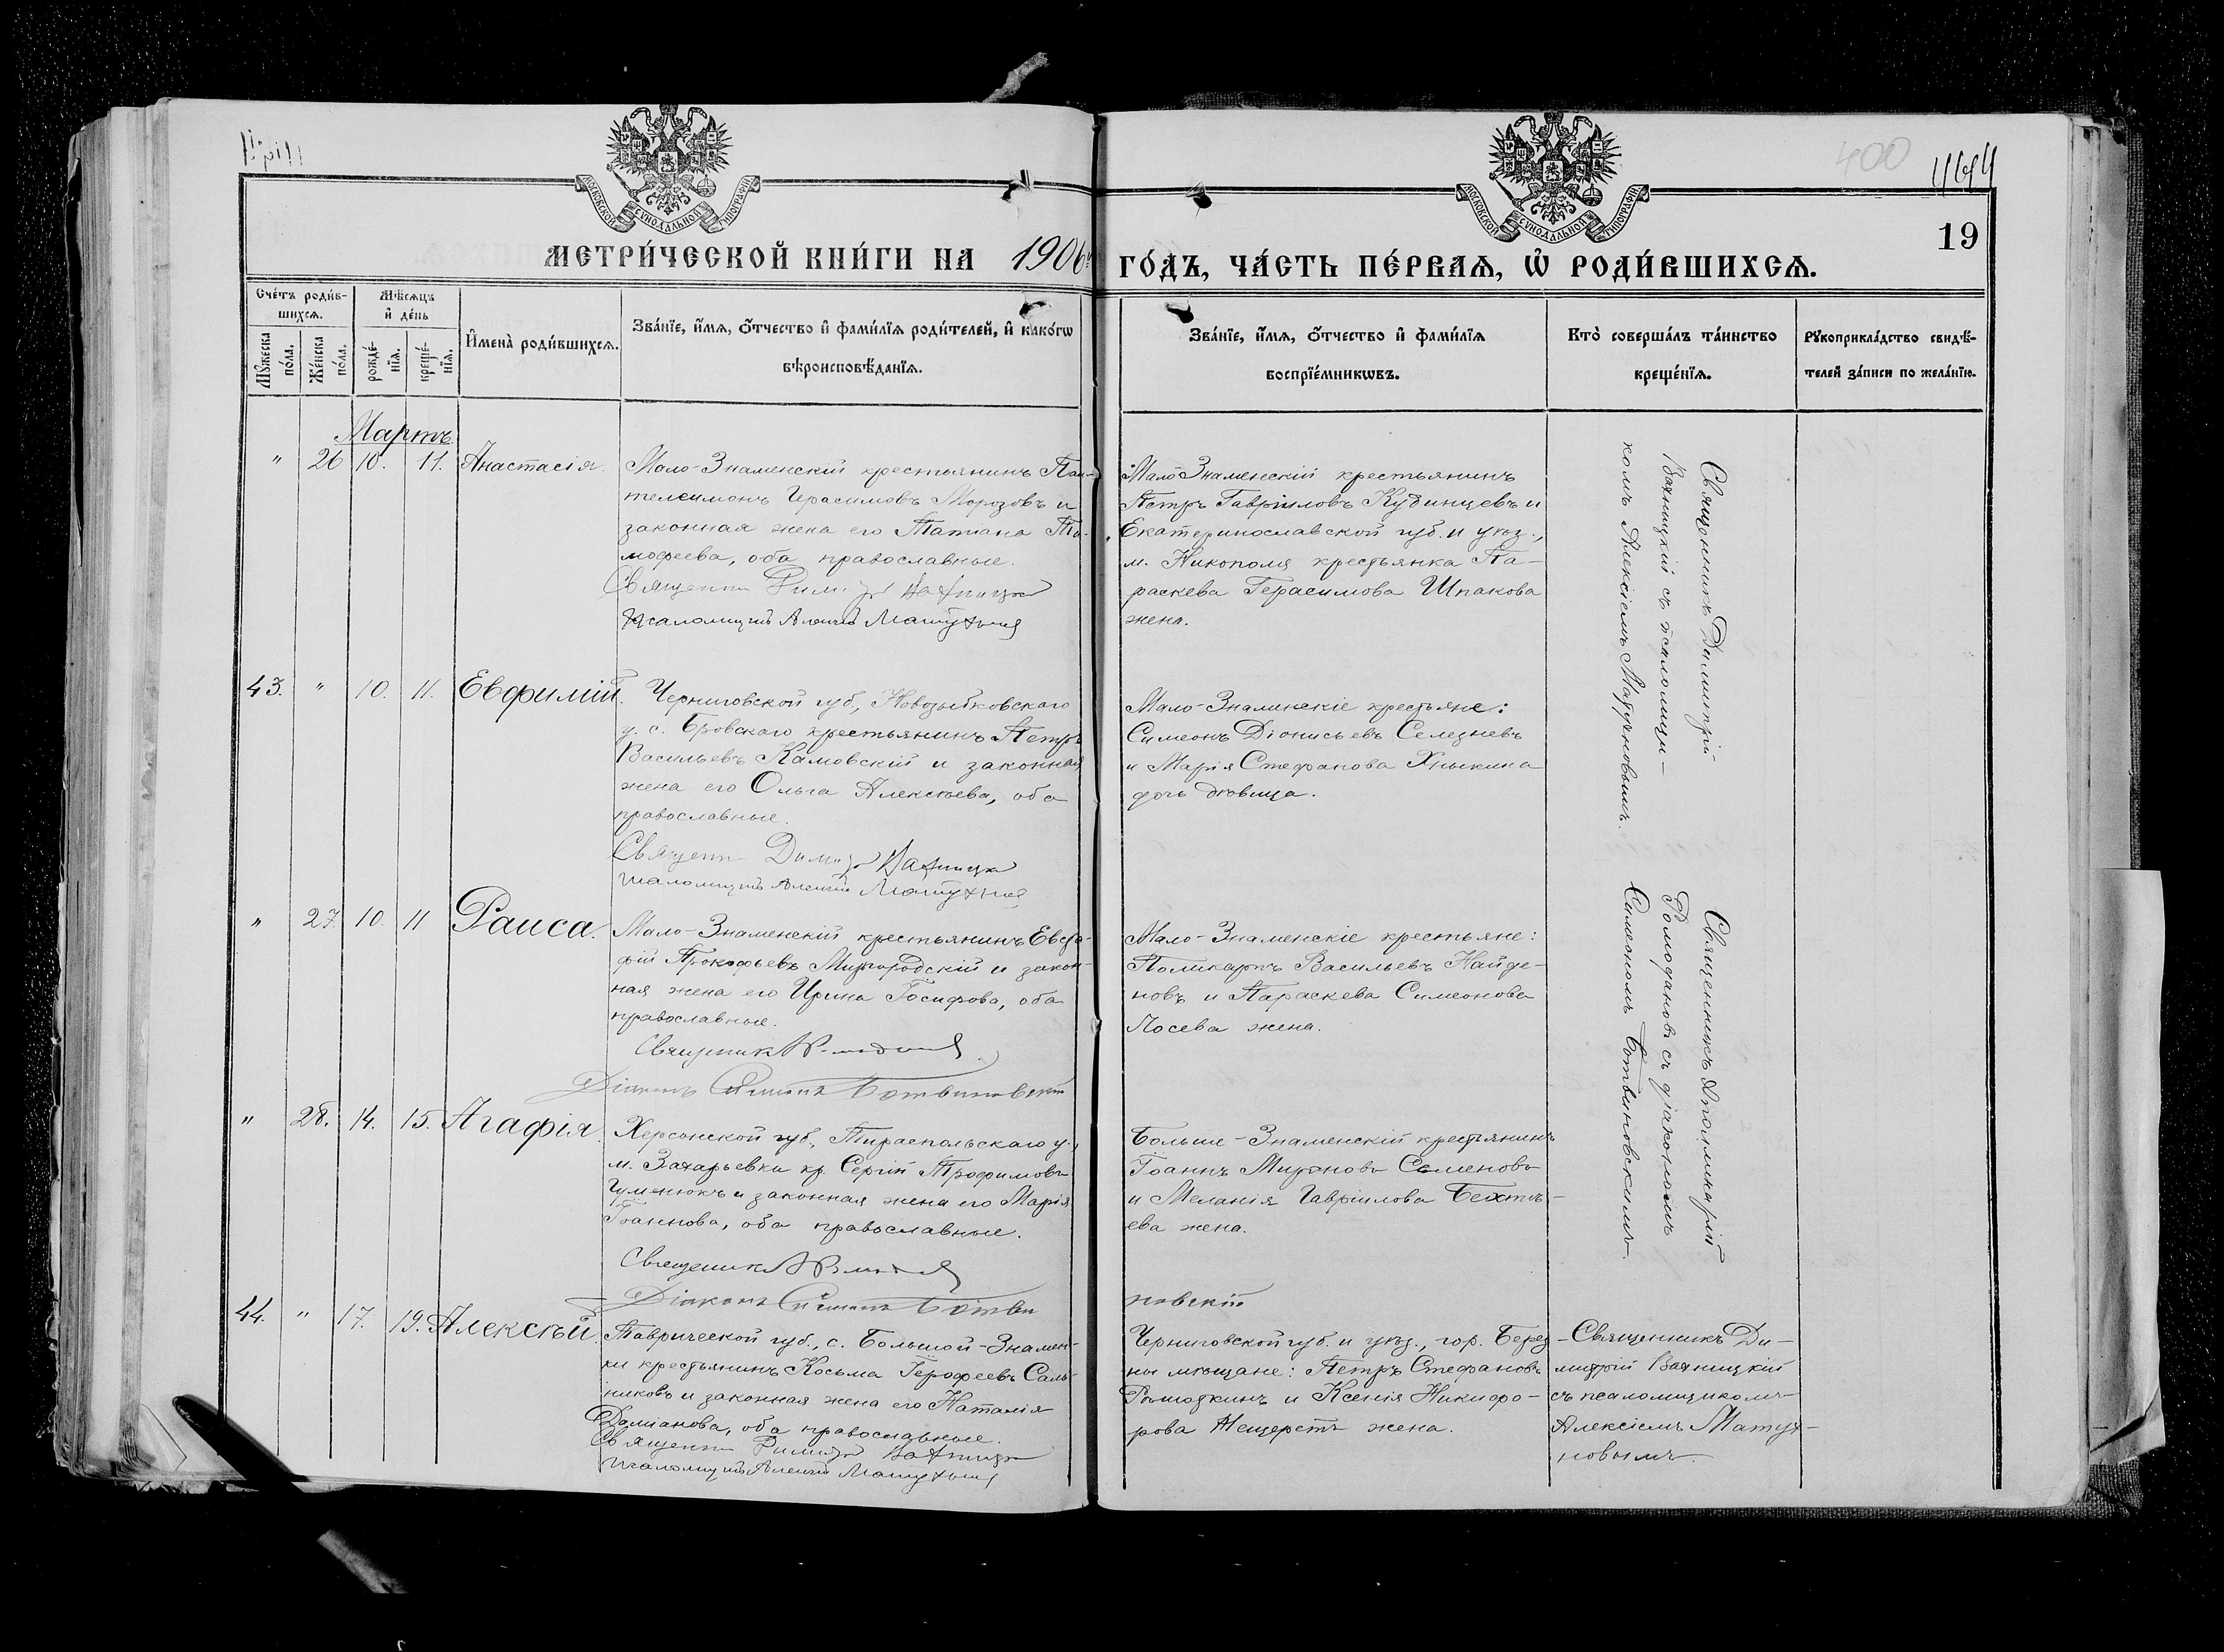 МОСКОВСКОЙ СУНОДАЛЬНОЙ ТИПОГРАФІИ
МОСКОВСКОЙ СУНОДАЛЬНОЙ ТИПОГРАФІИ
400
19
МЕТРИ́ЧЕСКОЙ КНИ́ГИ НА 1906й
ГО́ДЪ, ЧА́СТЬ ПЕ́РВАѦ, Ѡ҆ РОДИ́ВШИХСѦ.
Сче́тъ роди́в-
шихсѧ.
Мꙋ́жеска по́ла.
Же́нска по́ла.
Мѣ́сѧцъ
и҆ де́нь
рожде́-
нїѧ.
креще́-
нїѧ.
И҆мена̀ роди́вшихсѧ.
Зва́нїе, и҆́мѧ, ѻ҆́тчество и҆ фами́лїѧ роди́телей, и҆ како́гѡ
вѣроисповѣ́данїѧ.
Зва́нїе, и҆́мѧ, ѻ҆́тчество и҆ фами́лїѧ
воспрїе́мникѡвъ.
Кто̀ соверша́лъ та́инство
креще́нїѧ.
Рꙋкоприкла́дство свидѣ́-
телей за́писи по жела́нїю.
Мартъ
" 26 10. 11. Анастасія.
Мало-Знаменскій крестьянинъ Пан-
телеимонъ Герасимовъ Морозовъ и
законная жена его Татіана Ти-
мофеева, оба православные.
Священни
Псаломщикъ Алексій
Мало-Знаменскій крестьянинъ
Петръ Гавріиловъ Кудинцевъ и
Екатеринославской губ. и уѣз.,
м. Никополя крестьянка Па-
раскева Герасимова Шпакова
жена.
Священникъ Димитрій
Ваяницкій съ псаломщи-
комъ Алексіемъ Матуяновымъ.
43. " 10. 11. Евфимій.
Черниговской губ., Новозыбковскаго
у. с. Бровскаго крестьянинъ Петръ
Васильевъ Камовскій и законная
жена его Ольга Алексѣева, оба
православные.
Священн
Псаломщикъ Алексій
Мало-Знаменскіе крестьяне:
Симеонъ Діонисьевъ Селезневъ
и Марія Стефанова Хныкина
дочь дѣвица.
" 27 10. 11 Раиса.
Мало-Знаменскій крестьянинъ Евста-
фій Прокофьевъ Миргородскій и закон-
ная жена его Ирина Іосифова, оба
православные.
Священникъ
Діаконъ Симеонъ Ботвиновскій
Мало-Знаменскіе крестьяне:
Поликарпъ Васильевъ Найде-
новъ и Параскева Симеонова
Лосева жена.
Священникъ Аполлинарій
Ромодановъ съ діакономъ
Симеономъ Ботвиновскимъ.
" 28. 14. 15. Агафія.
Херсонской губ., Тираспольскаго у.,
м. Захарьевки кр. Сергій Трофимовъ
Гуменюкъ и законная жена его Марія
Іоаннова, оба православные.
Священникъ
Діаконъ Симеонъ Ботви
новскій
Больше-Знаменскій крестьянинъ
Іоаннъ Мироновъ Семеновъ
и Меланія Гавріилова Бехтѣ-
ева жена.
44. " 17. 19. Алексѣй.
Таврической губ., с. Большой-Знамен-
ки крестьянинъ Косьма Іерофеевъ Саль-
никовъ и законная жена его Наталія
Даміанова, оба православные.
Священни
Псаломщикъ Алексій
Черниговской губ. и уѣз., гор. Берез-
ны мѣщане: Петръ Стефановъ
и Ксенія Никифо-
рова жена.
Священникъ Ди-
митрій Ваяницкій
съ псаломщикомъ
Алексіемъ Матуя-
новымъ.